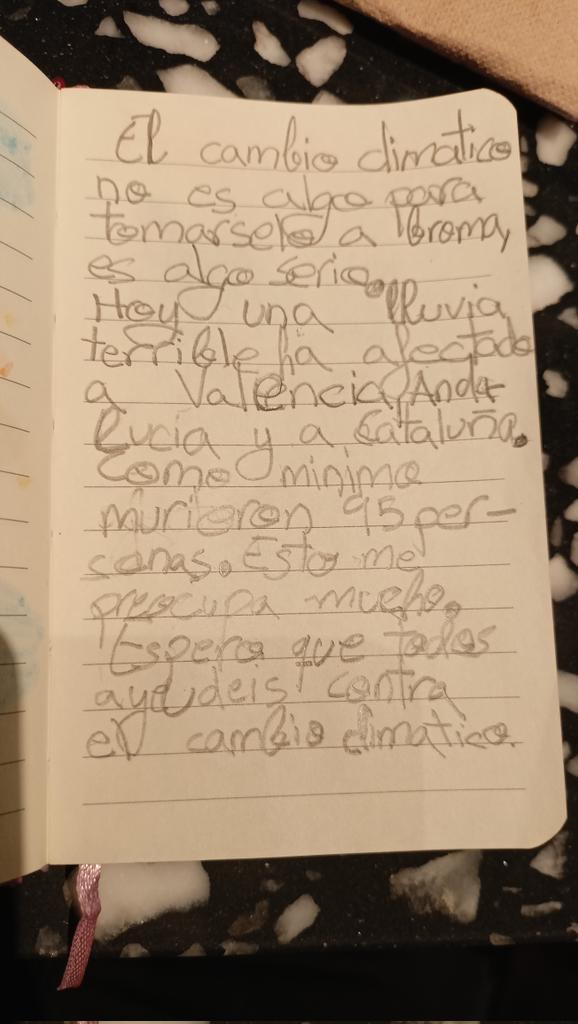 El cambio climatico
no es algo para
tomarselo a broma,
es algo serio.
Hoy una lluvia
terrible ha afectado
a Valencia, Anda-
lucia y a Cataluña.
Como minimo
murieron 95 per-
sonas. Esto me
preocupa mucho.
Espero que todos
ayudeis contra
el cambio climatico.